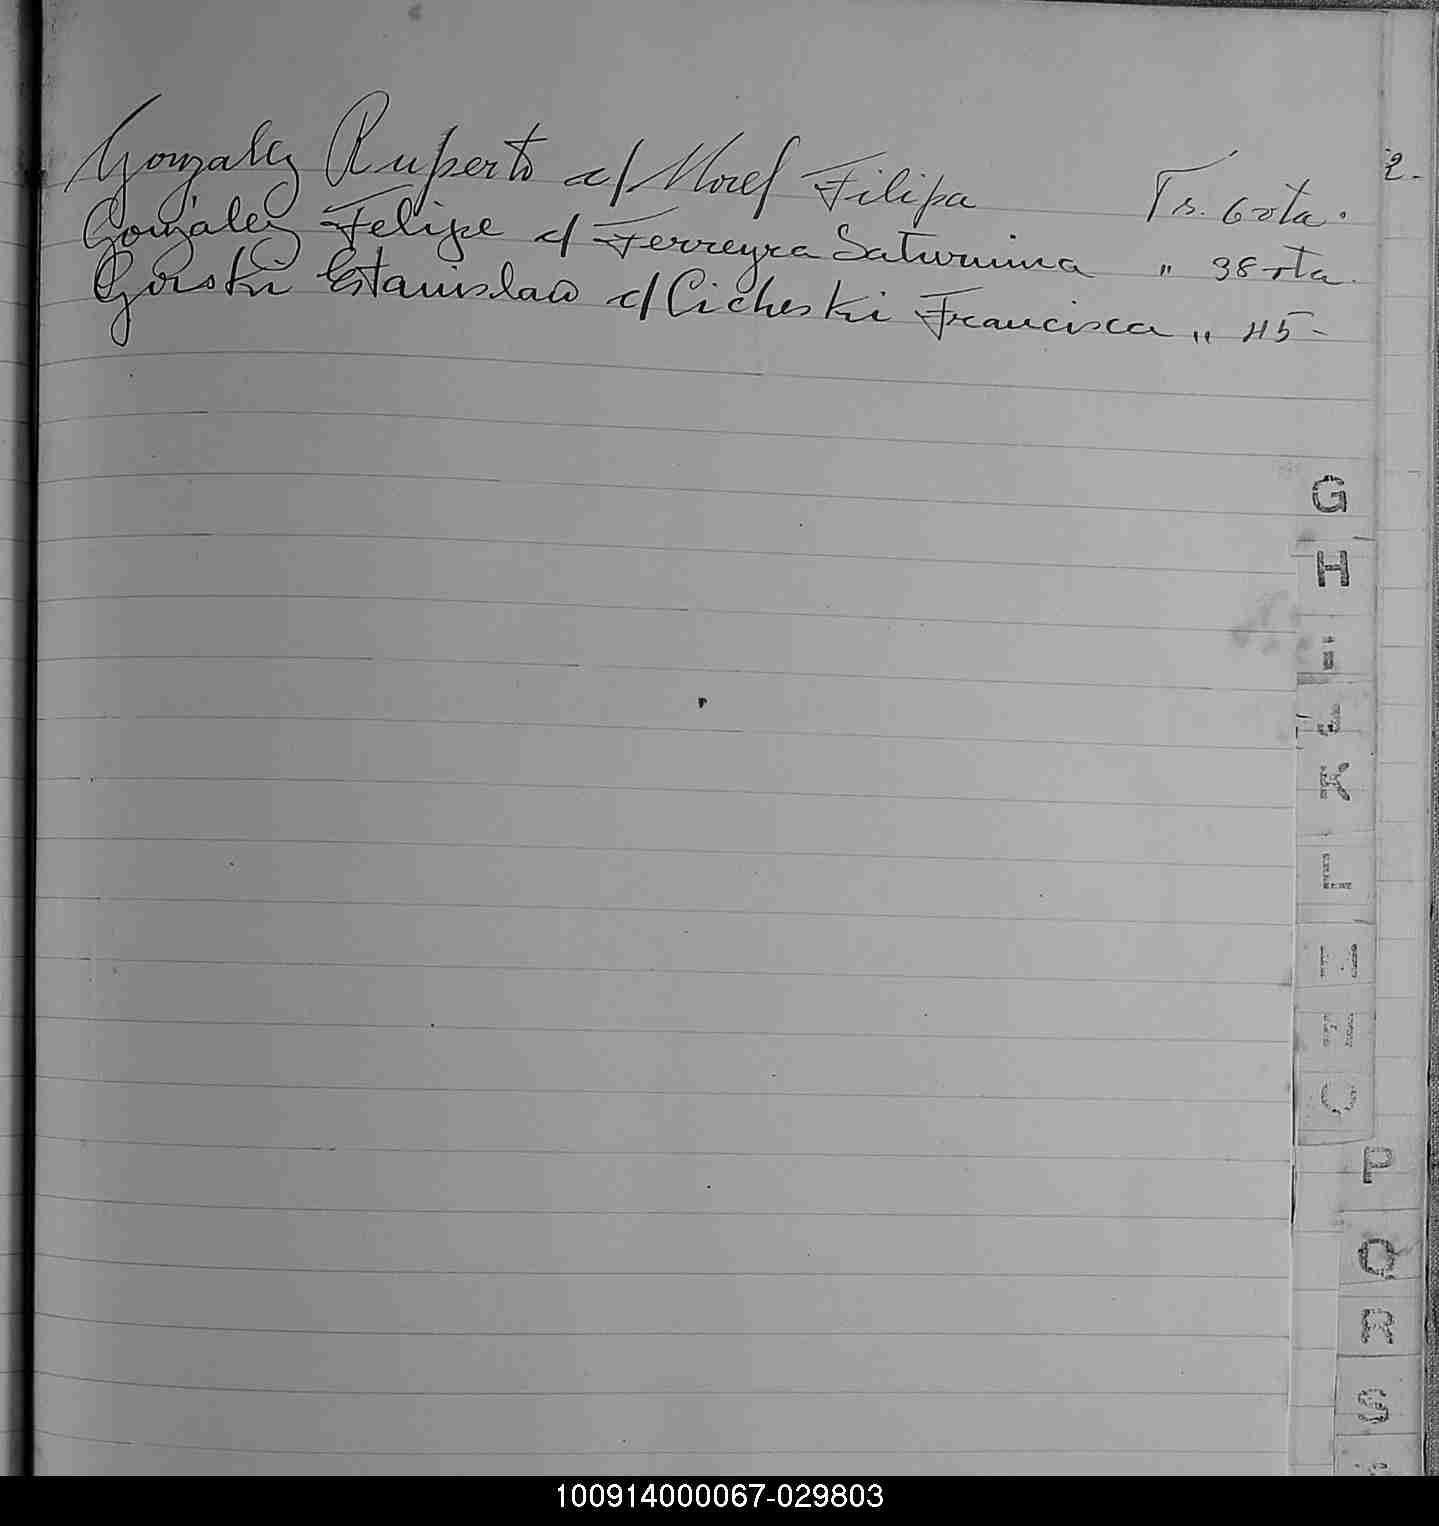 Gonzalez Ruperto c/ Morel Filipa Fs. 6 vta. 2.
González Felipe c/ Ferreyra Saturnina " 38 vta.
Gorski Estanislao c/ Cicheski Francisca " 45-
G
H
i
J
K
L
M
N
O
P
Q
R
S
100914000067-029803